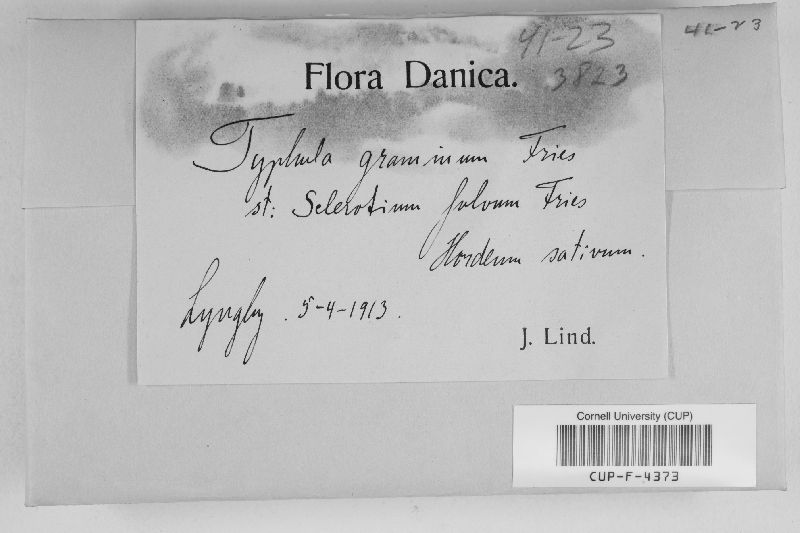 41-23
41-23
3823
Flora Danica.
Typhula graminum Fries
st: Sclerotium fulvum Fries
Hordeum sativum.
Lyngby. 5-4-1913.
J. Lind.
Cornell University (CUP)
CUP-F-4373